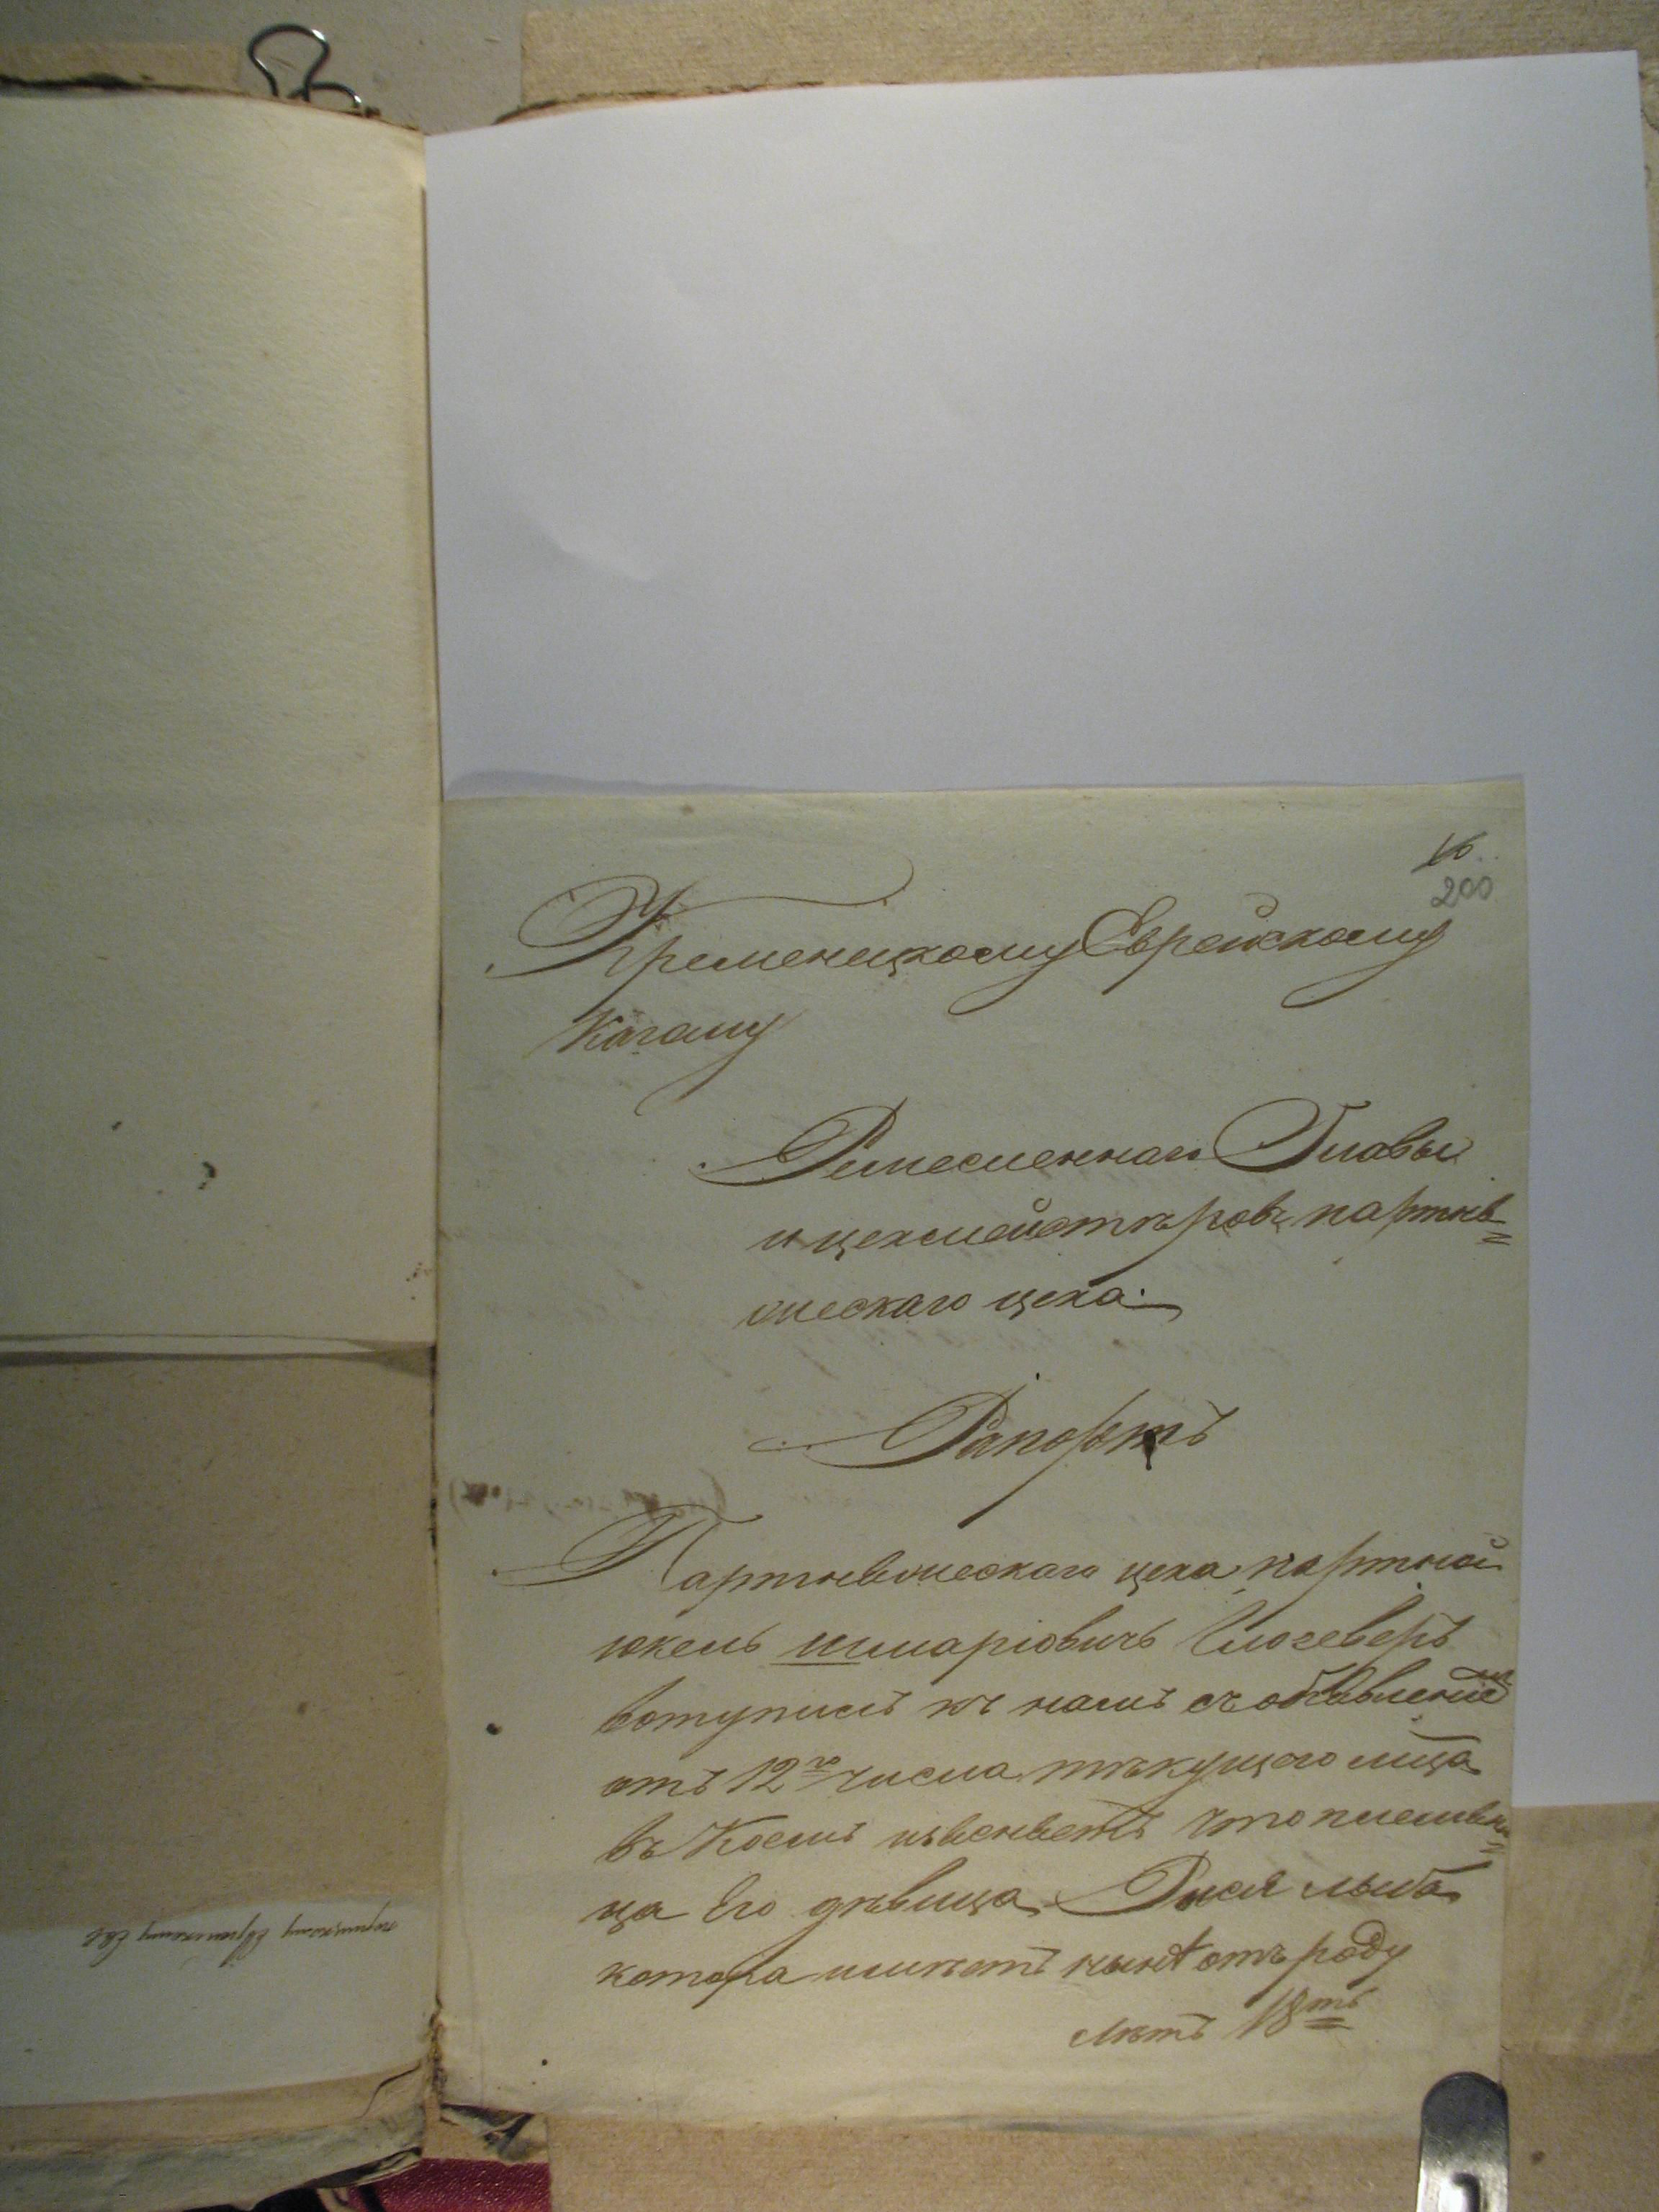 16
200
Кременецкому Еврейскому
Кагалу
Ремесленнаго Главы
и цехмейстеровъ портнѣ=
ческаго цеха.
Рапортъ
Портнѣвческаго цеха портной
юкель шмаріовичъ
вступилъ къ намъ съ объявленіемъ
отъ 12го числа текущего мѣца
въ Коемъ изъясняетъ что племѣнни=
ца Его дѣвица Рися
котора имѣетъ нынѣ отъ роду
лѣтъ 18ть